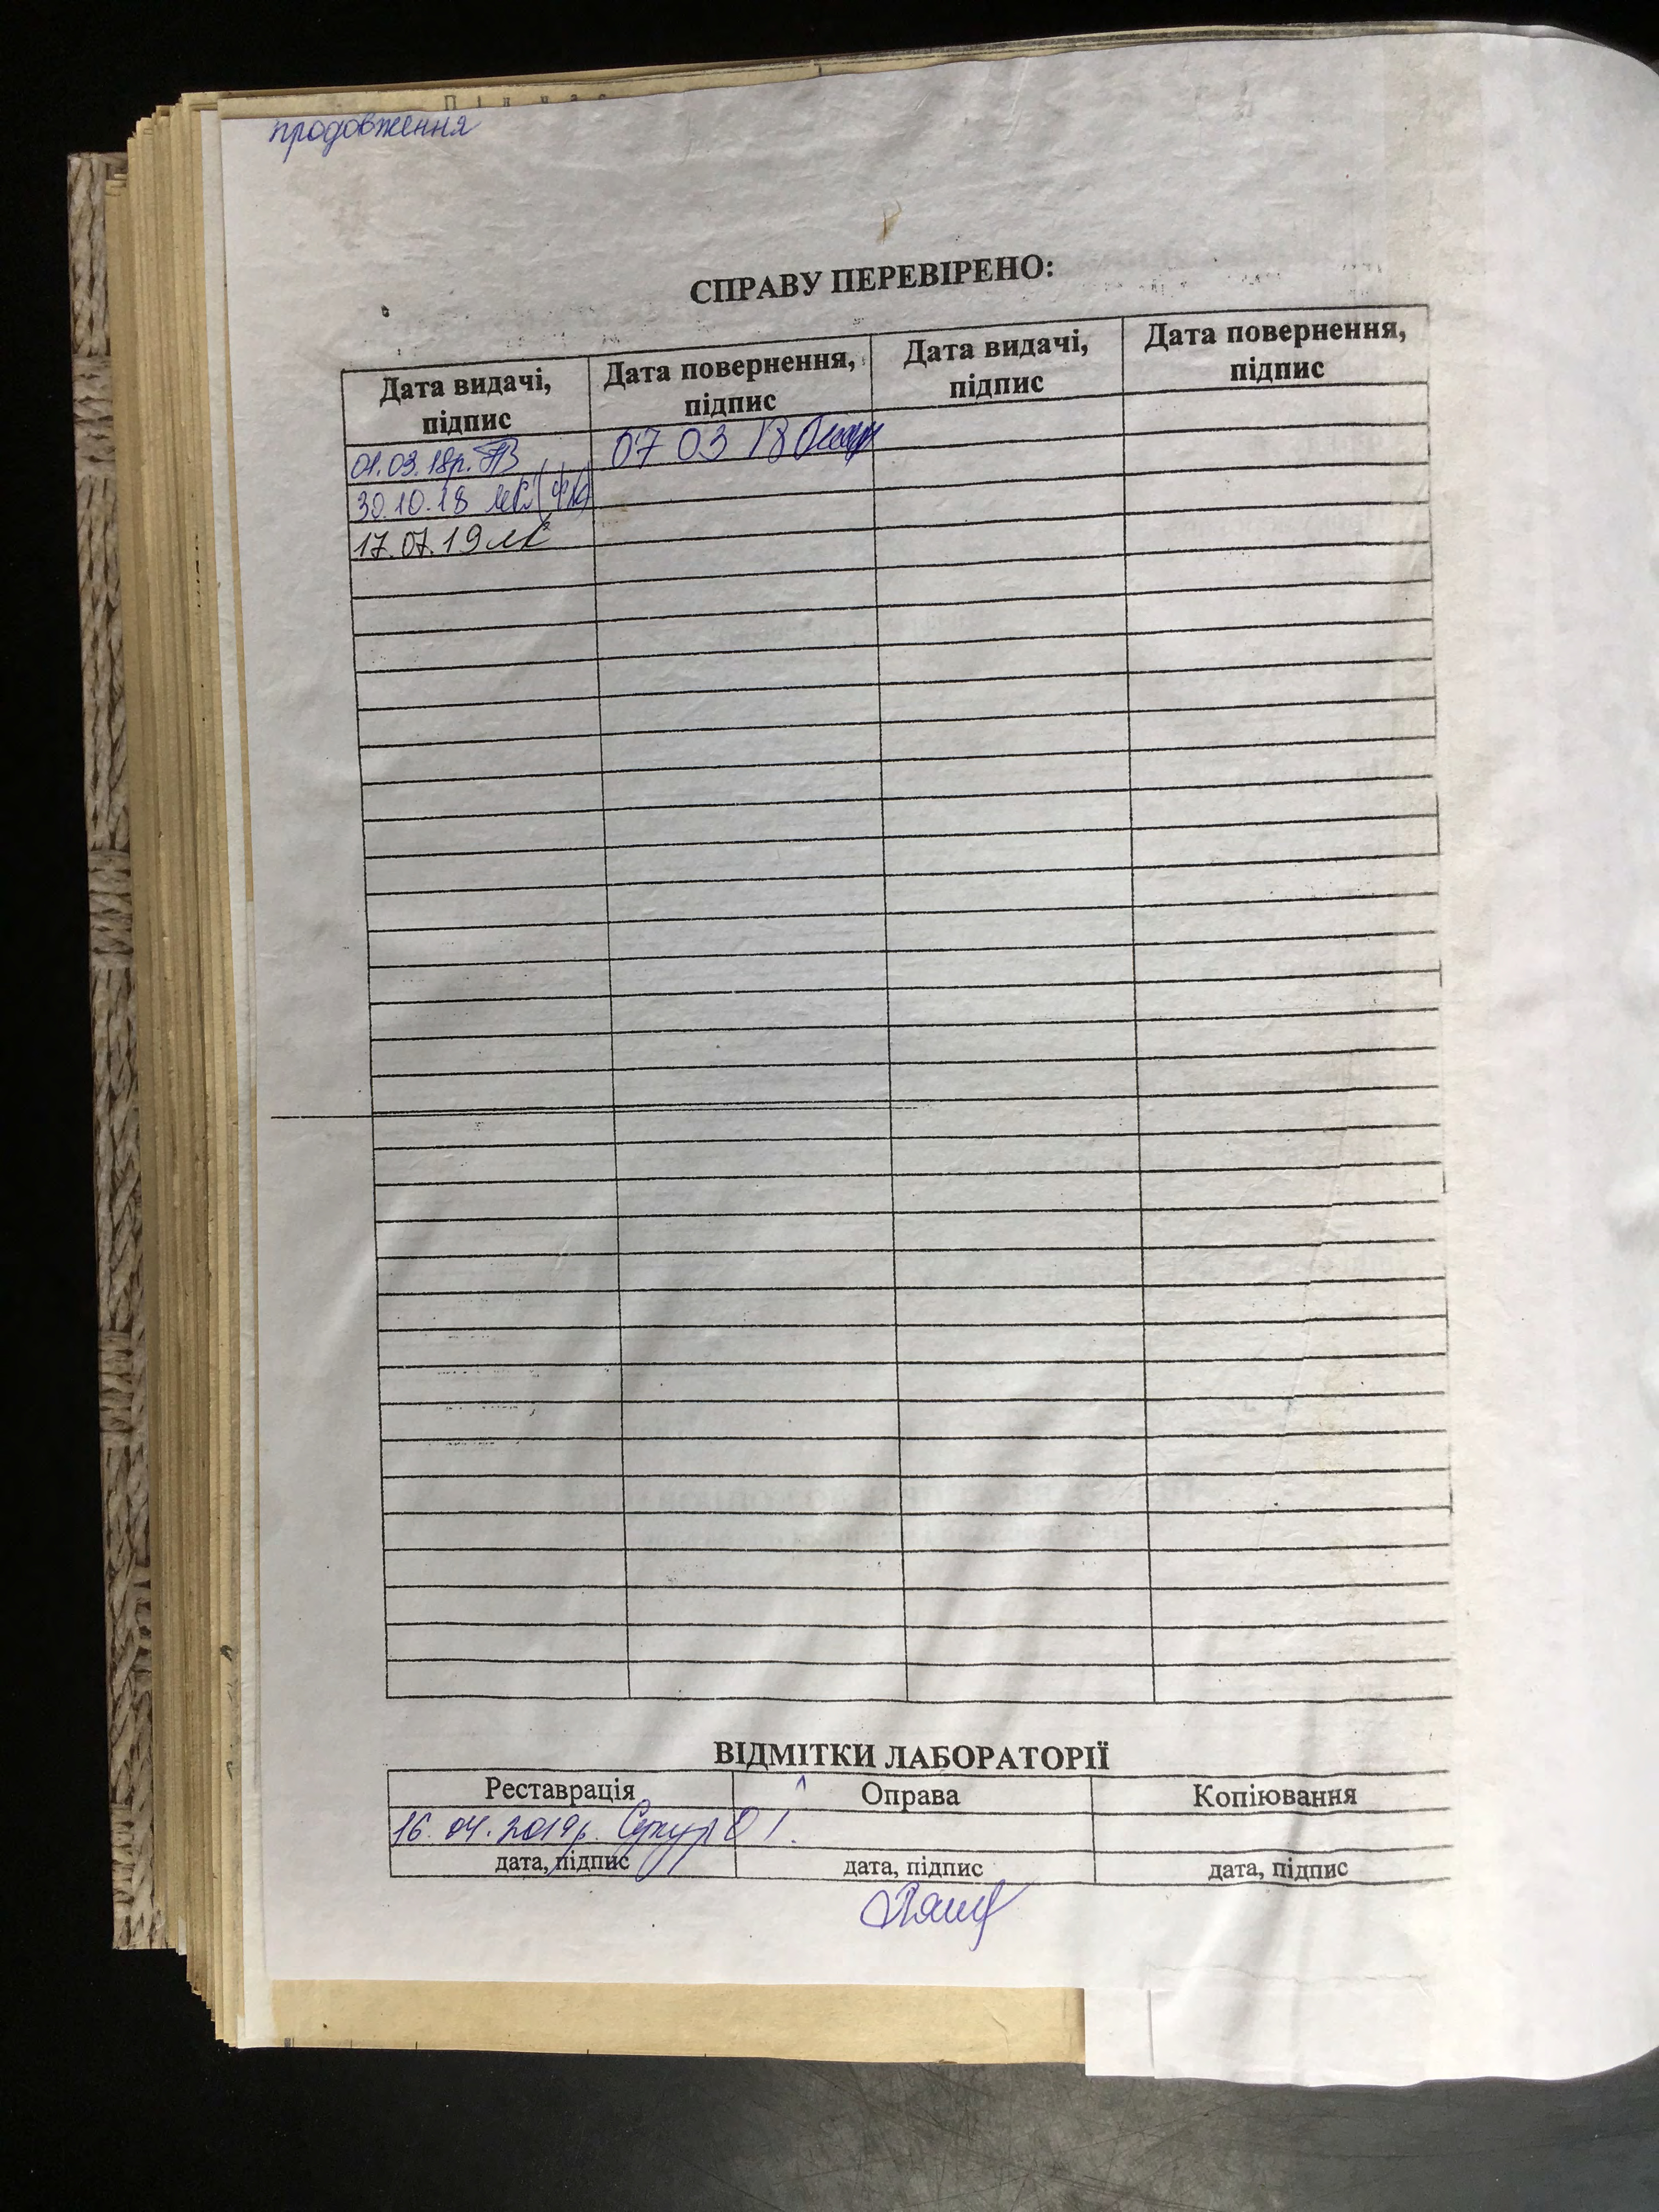 продовження
СПРАВУ ПЕРЕВІРЕНО:
Дата видачі, підпис Дата повернення, підпис Дата видачі, підпис Дата повернення, підпис
01.03.18р. 07 03 18
30.10.18
17.07.19
ВІДМІТКИ ЛАБОРАТОРІЇ
Реставрація Оправа Копіювання
16.04.2019р.
дата, підпис дата, підпис дата, підпис